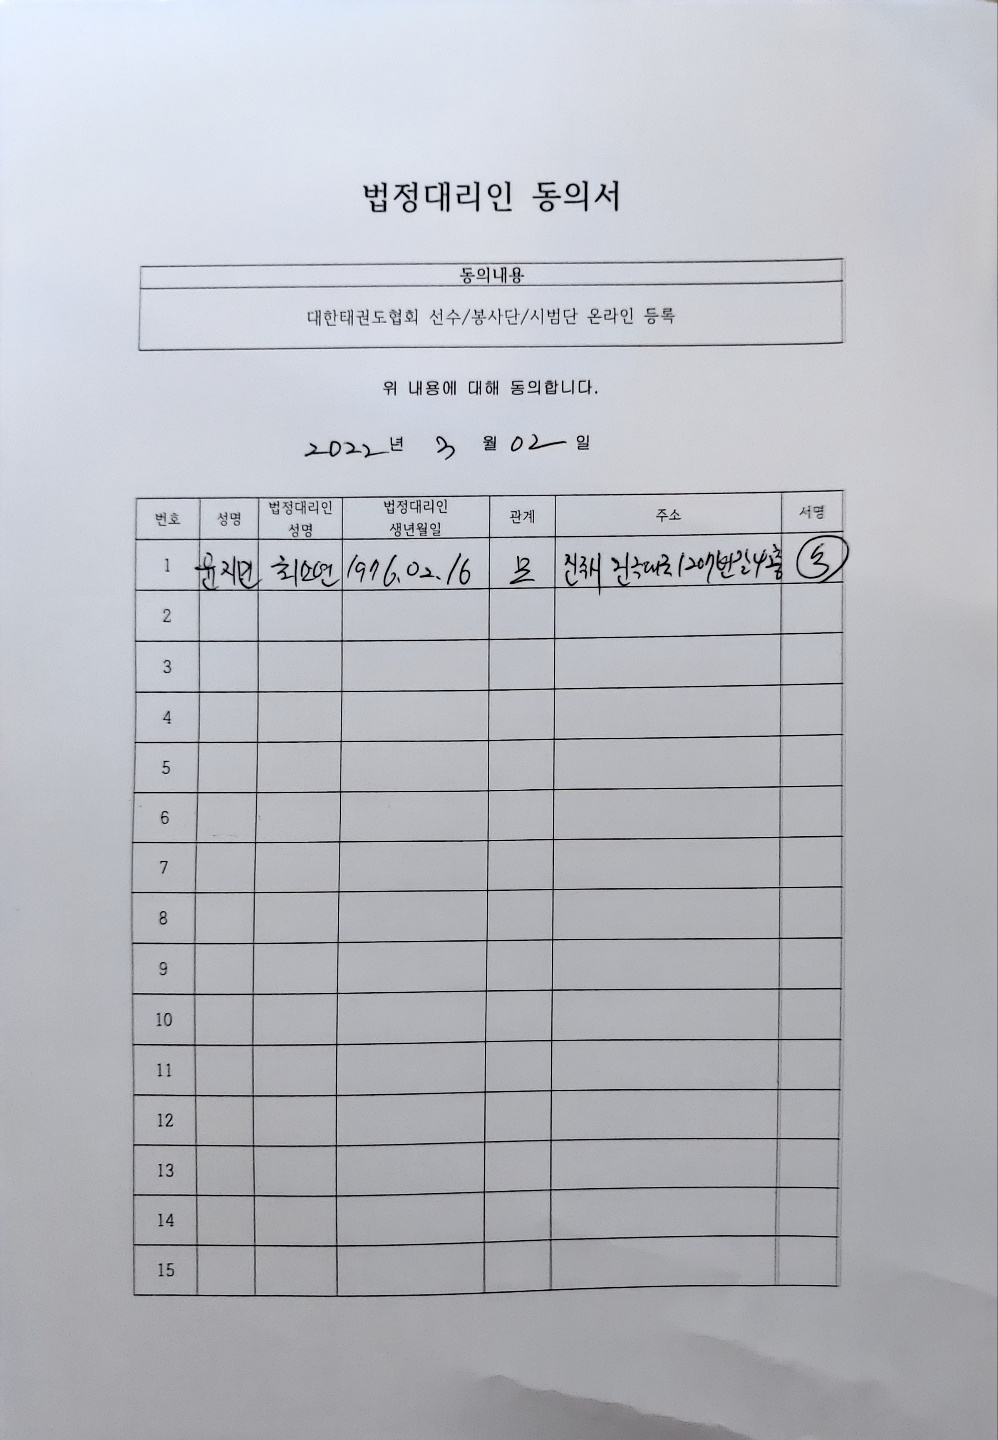 법정대리인 동의서
동의내용
대한태권도협회 선수/봉사단/시범단 온라인 등록
위 내용에 대해 동의합니다.
2022년 3 월 02 일
번호 성명 법정대리인 성명 법정대리인 생년월일 관계 주소 서명
1 윤지민 최소연 1976.02.16 모 진주시 진주대로1207번길4 2층
2
3
4
5
6
7
8
9
10
11
12
13
14
15